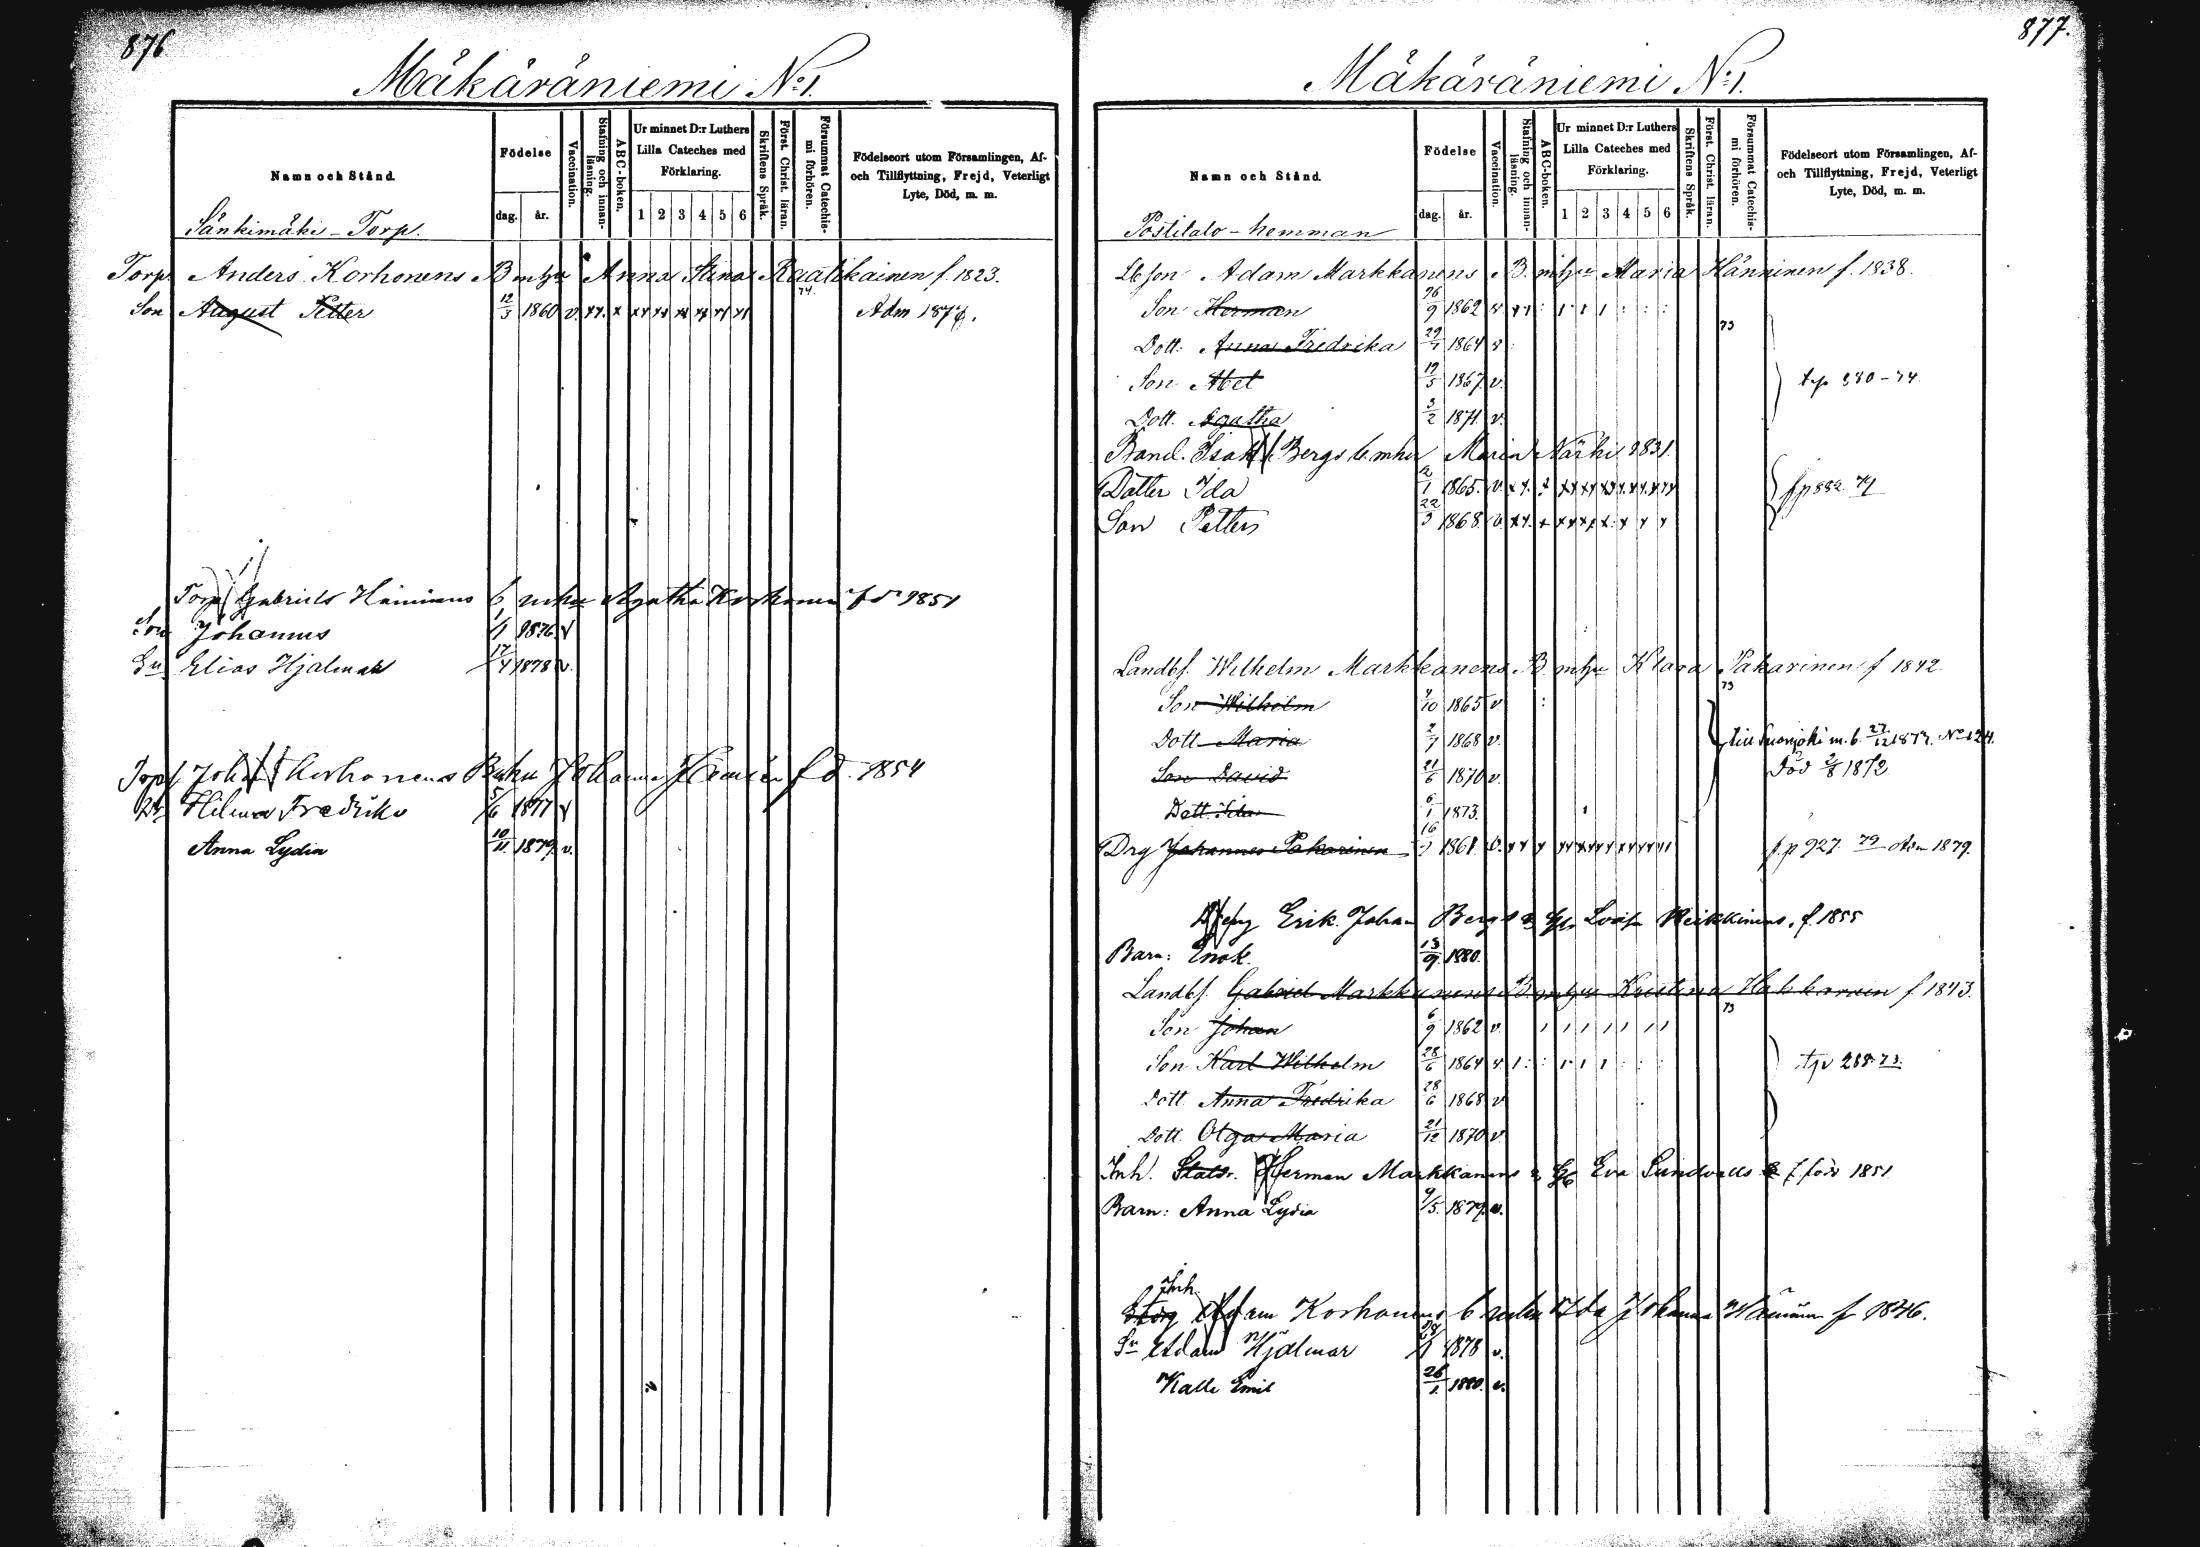 876
Mäkäräniemi No 1.
Namn och Stånd.
Födelse
dag.
år.
Vaccination.
Stafning och innan-läsning.
ABC-boken.
Ur minnet D:r Luthers
Lilla Cateches med
Förklaring.
1 2 3 4 5 6
Skriftens Språk.
Först. Christ. läran.
Försummat Catechis-
mi förhören.
Födelseort utom Församlingen, Af-
och Tillflyttning, Frejd, Veterligt
Lyte, Död, m. m.
Sänkimäki - Torp.
Torp. Anders Korhonens B m hu Anna Stina Raatikainen f. 1823.
74
Son August Petter 12/3 1860 v. Adm 1876.
Torp Gabriels Häninens b m hu Agatha Korhonen fd 1851
Son Johannes 1/1 1876 v
Sn Elias Hjalmar 17/4 1878 v.
Torp Johan Korhonens B m hu Johanna fd 1854
Dr Hilma Fredrika 5/6 1877 v
Anna Lydia 10/11 1879 v.
877.
Mäkäräniemi No 1.
Namn och Stånd.
Födelse
dag.
år.
Vaccination.
Stafning och innan-läsning.
ABC-boken.
Ur minnet D:r Luthers
Lilla Cateches med
Förklaring.
1 2 3 4 5 6
Skriftens Språk.
Först. Christ. läran.
Försummat Catechis-
mi förhören.
Födelseort utom Församlingen, Af-
och Tillflyttning, Frejd, Veterligt
Lyte, Död, m. m.
Postilalo - hemman
Lb son Adam Markkanens B. m hu Maria Hänninen f. 1838.
Son Herman 26/9 1862 v
73
Dott. Anna Fredrika 29/1 1864 v
Son Abel 19/5 1867 v. t p 380-74
Dott. Agatha 3/2 1871 v.
Band. Isak Bergs b. m hu Maria Närhi 1831.
Dotter Ida 2/1 1865. v. f p 882. 71
Son Petter 22/3 1868 v.
Landbf. Wilhelm Markkanens B m hu Klara Pakarinen f 1842
73
Son Wilhelm 9/10 1865 v
Dott Maria 2/7 1868 v. till Suonjoki m. b. 27/12 1873. No 124.
Son David 21/6 1870 v. Död 2/8 1872
Dott. Ida 6/1 1873.
Drg Johannes Pakarinen 16/9 1861 v. f. p 927 79 Adm 1879.
Erik Johan Bergs Lovisa Heikkinens, f. 1855
Barn: Enok. 13/9 1880.
Landbf. Gabriel Markkanens B. m hu Kristina Hakkarinen f 1843.
73
Son Johan 6/9 1862 v.
Son Karl Wilhelm 28/6 1864 v. t p 288. 73
Dott Anna Fredrika 28/6 1868 v
Dott Olga Maria 21/12 1870 v.
Inh. Statdr. Herman Markkanens Eva Sundvalls f född 1851
Barn: Anna Lydia 9/5. 1879. v.
Inh.
Adam Korhonens b m hu Ida Johanna f 1846.
Sn Adam Hjalmar 1878 v.
Kalle Emil 26/1. 1880. v.